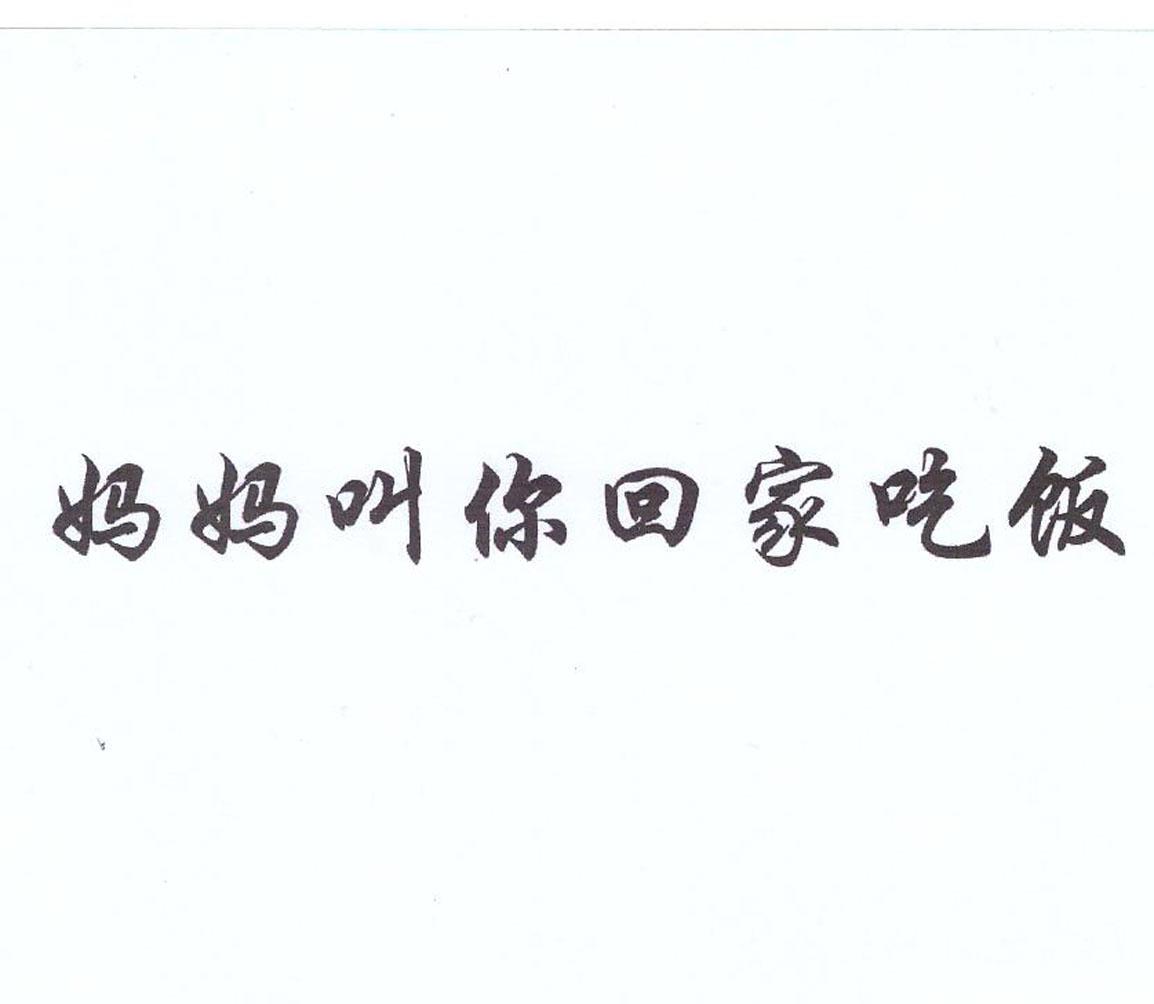 妈妈叫你回家吃饭